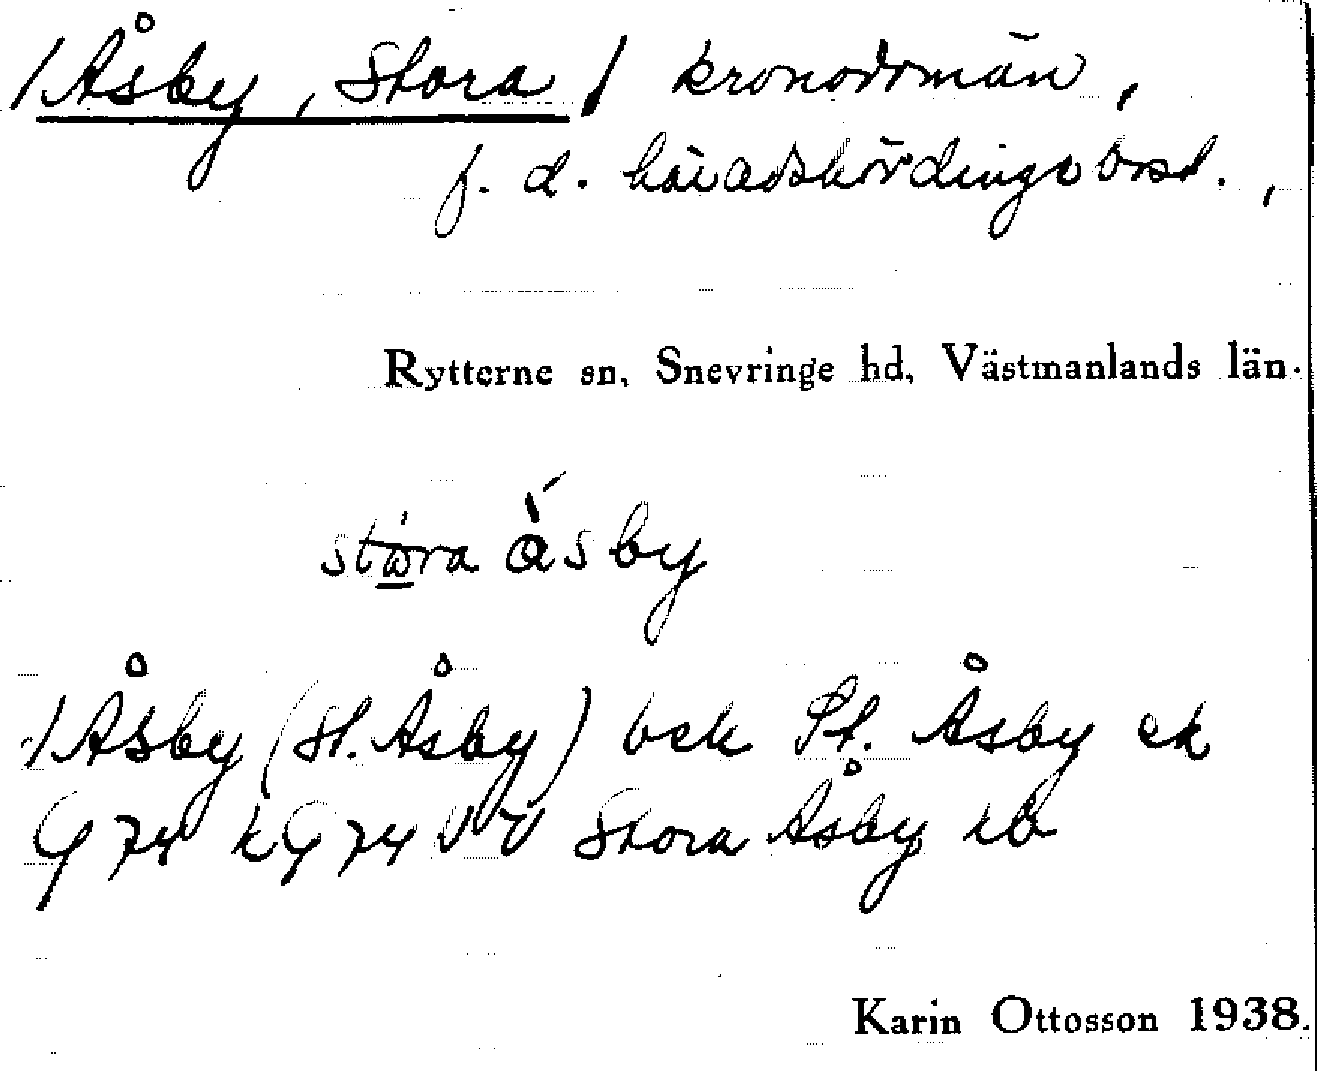 /Åsby, Stora/ kronodomän,
f. d. häradshövdingebost.,
Rytterne sn, Snevringe hd, Västmanlands län.
stora åsby
/Åsby (St. Åsby) bek St. Åsby ek
G 74 kG 74 Stora Åsby
Karin Ottosson 1938.